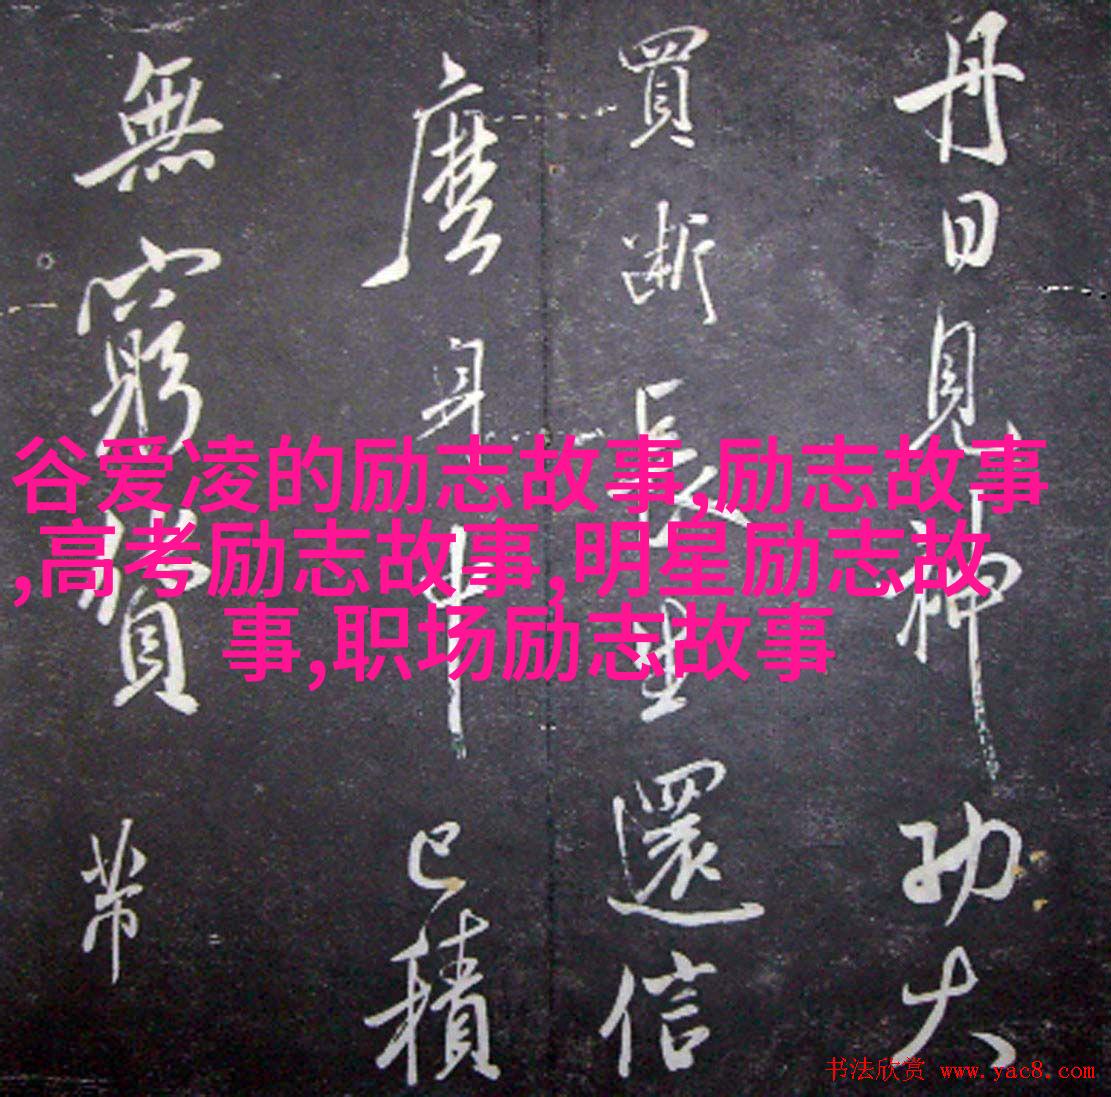 丹日見神功大
買斷長生還信
麼身中已積
無窮 帶
谷爱凌的励志故事,励志故事
,高考励志故事,明星励志故
事,职场励志故事
书法欣赏 www.yac8.com